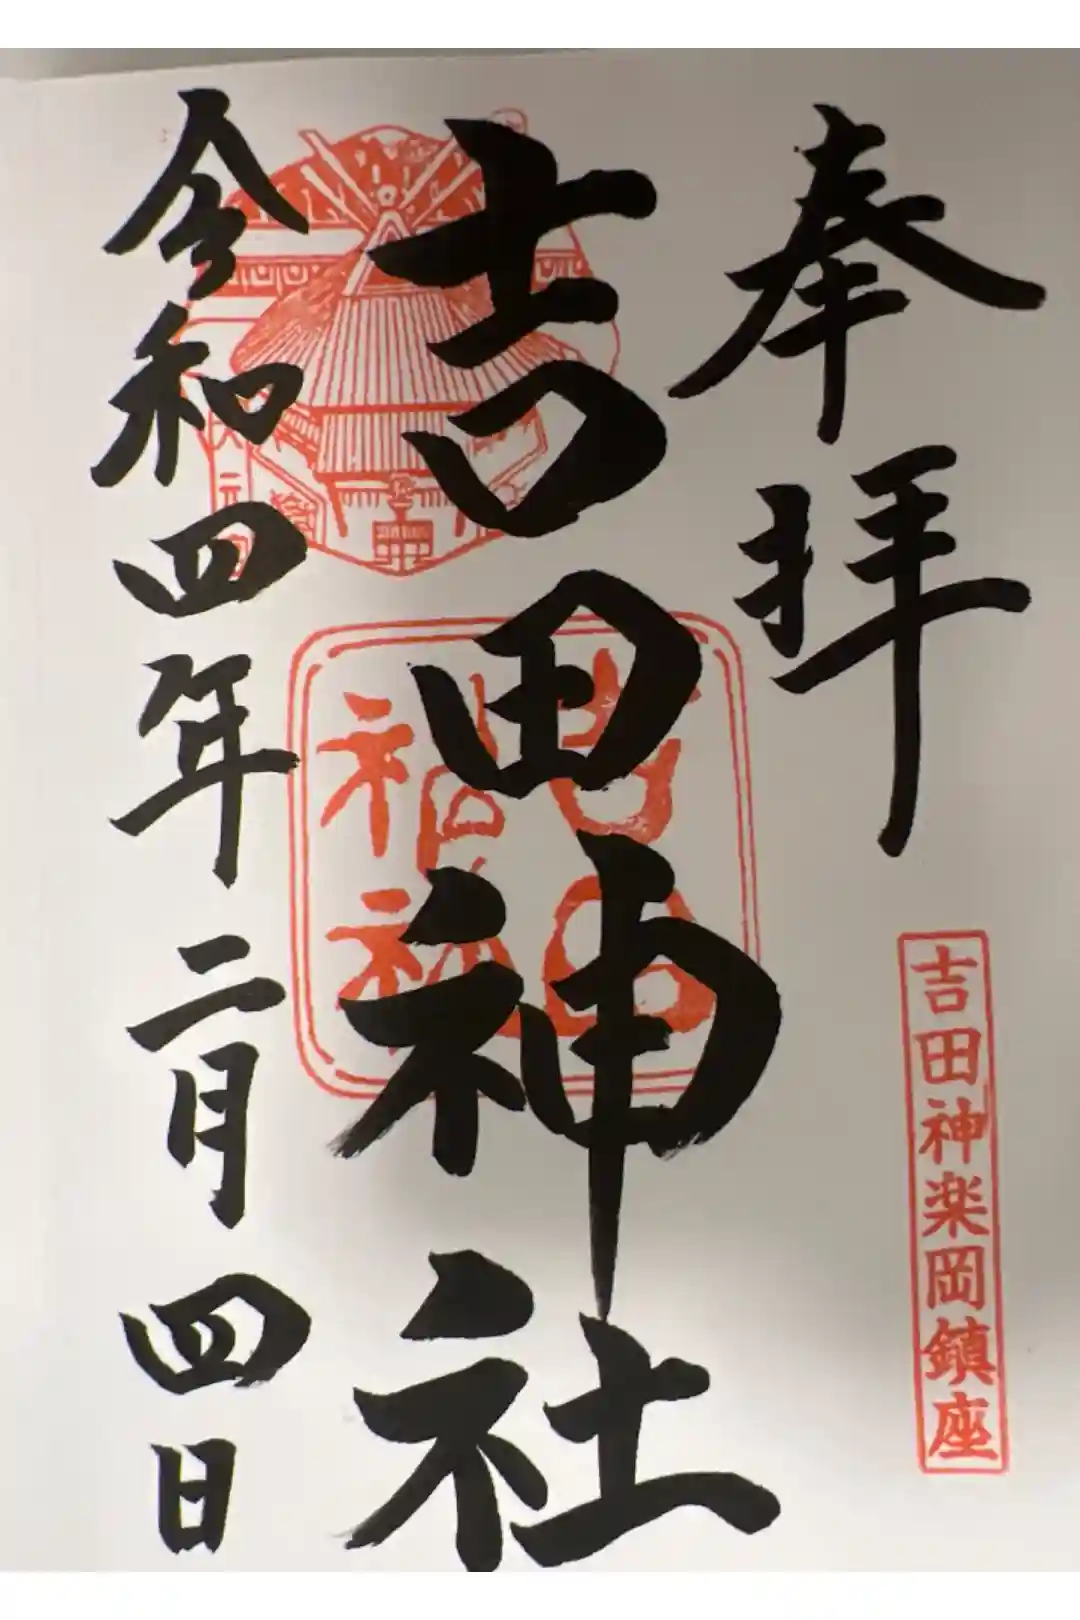 奉拝
吉田神楽岡鎮座
吉田神社
吉田
神社
大元宮
令和四年二月四日